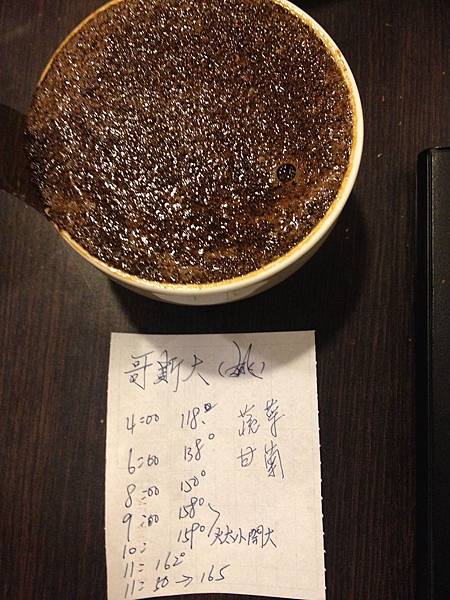 哥斯大
4:00 118° 蔬草
6:00 138° 甘蔗
8:00 150°
9:00 158°
10: 159° 火太小開大
11: 162°
11:50 → 165